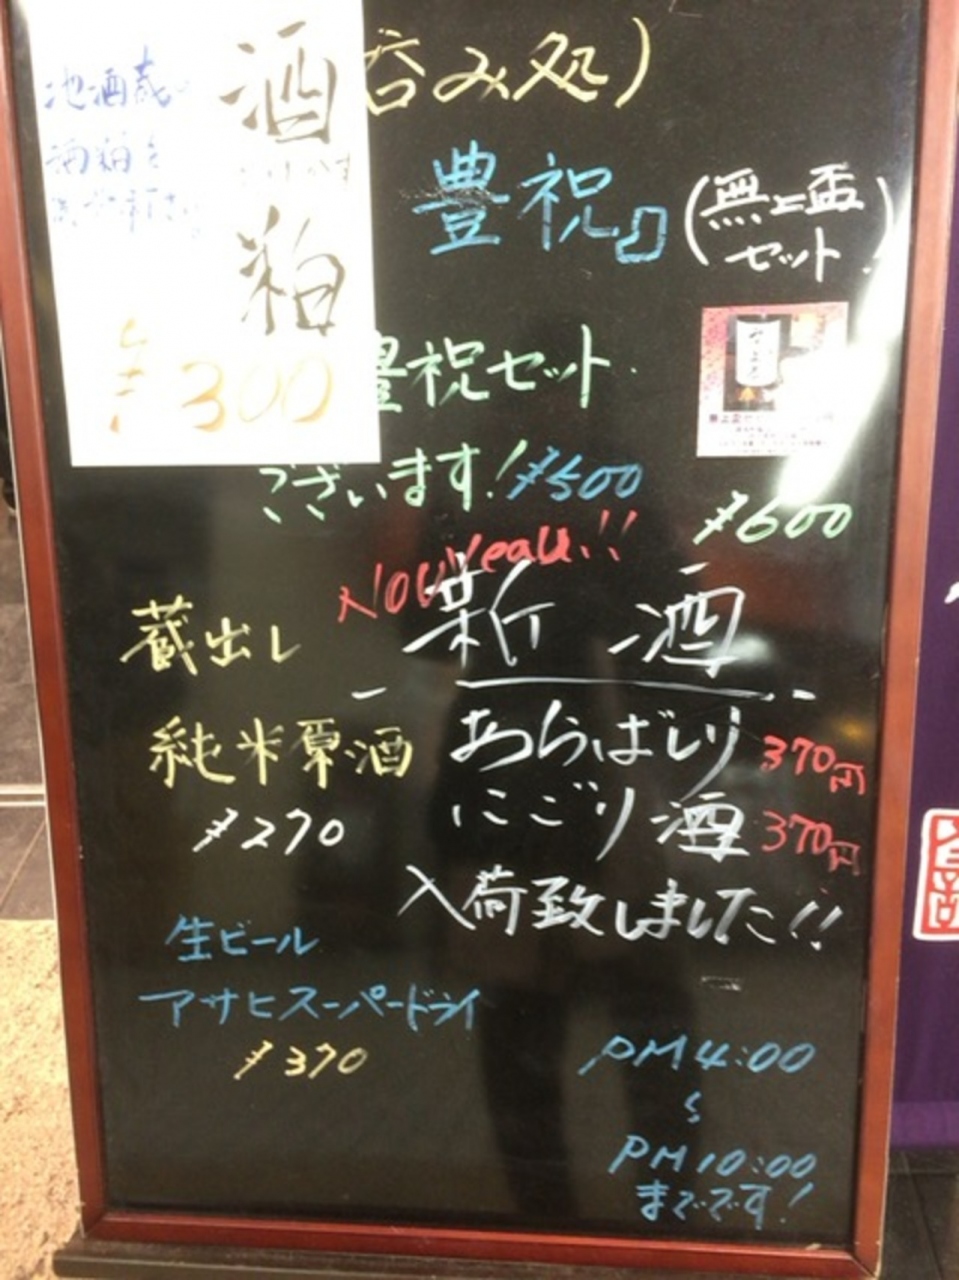 呑み処)
池酒蔵
酒粕を
酒
粕
¥300
豊祝』
(無上盃
セット)
豊祝セット
ございます! ¥500
¥600
Nouveau!!
蔵出し
新酒
純米原酒
¥270
あらばしり 370円
にごり酒 370円
入荷致しました!!
生ビール
アサヒスーパードライ
¥370
PM4:00
〜
PM10:00
までです!